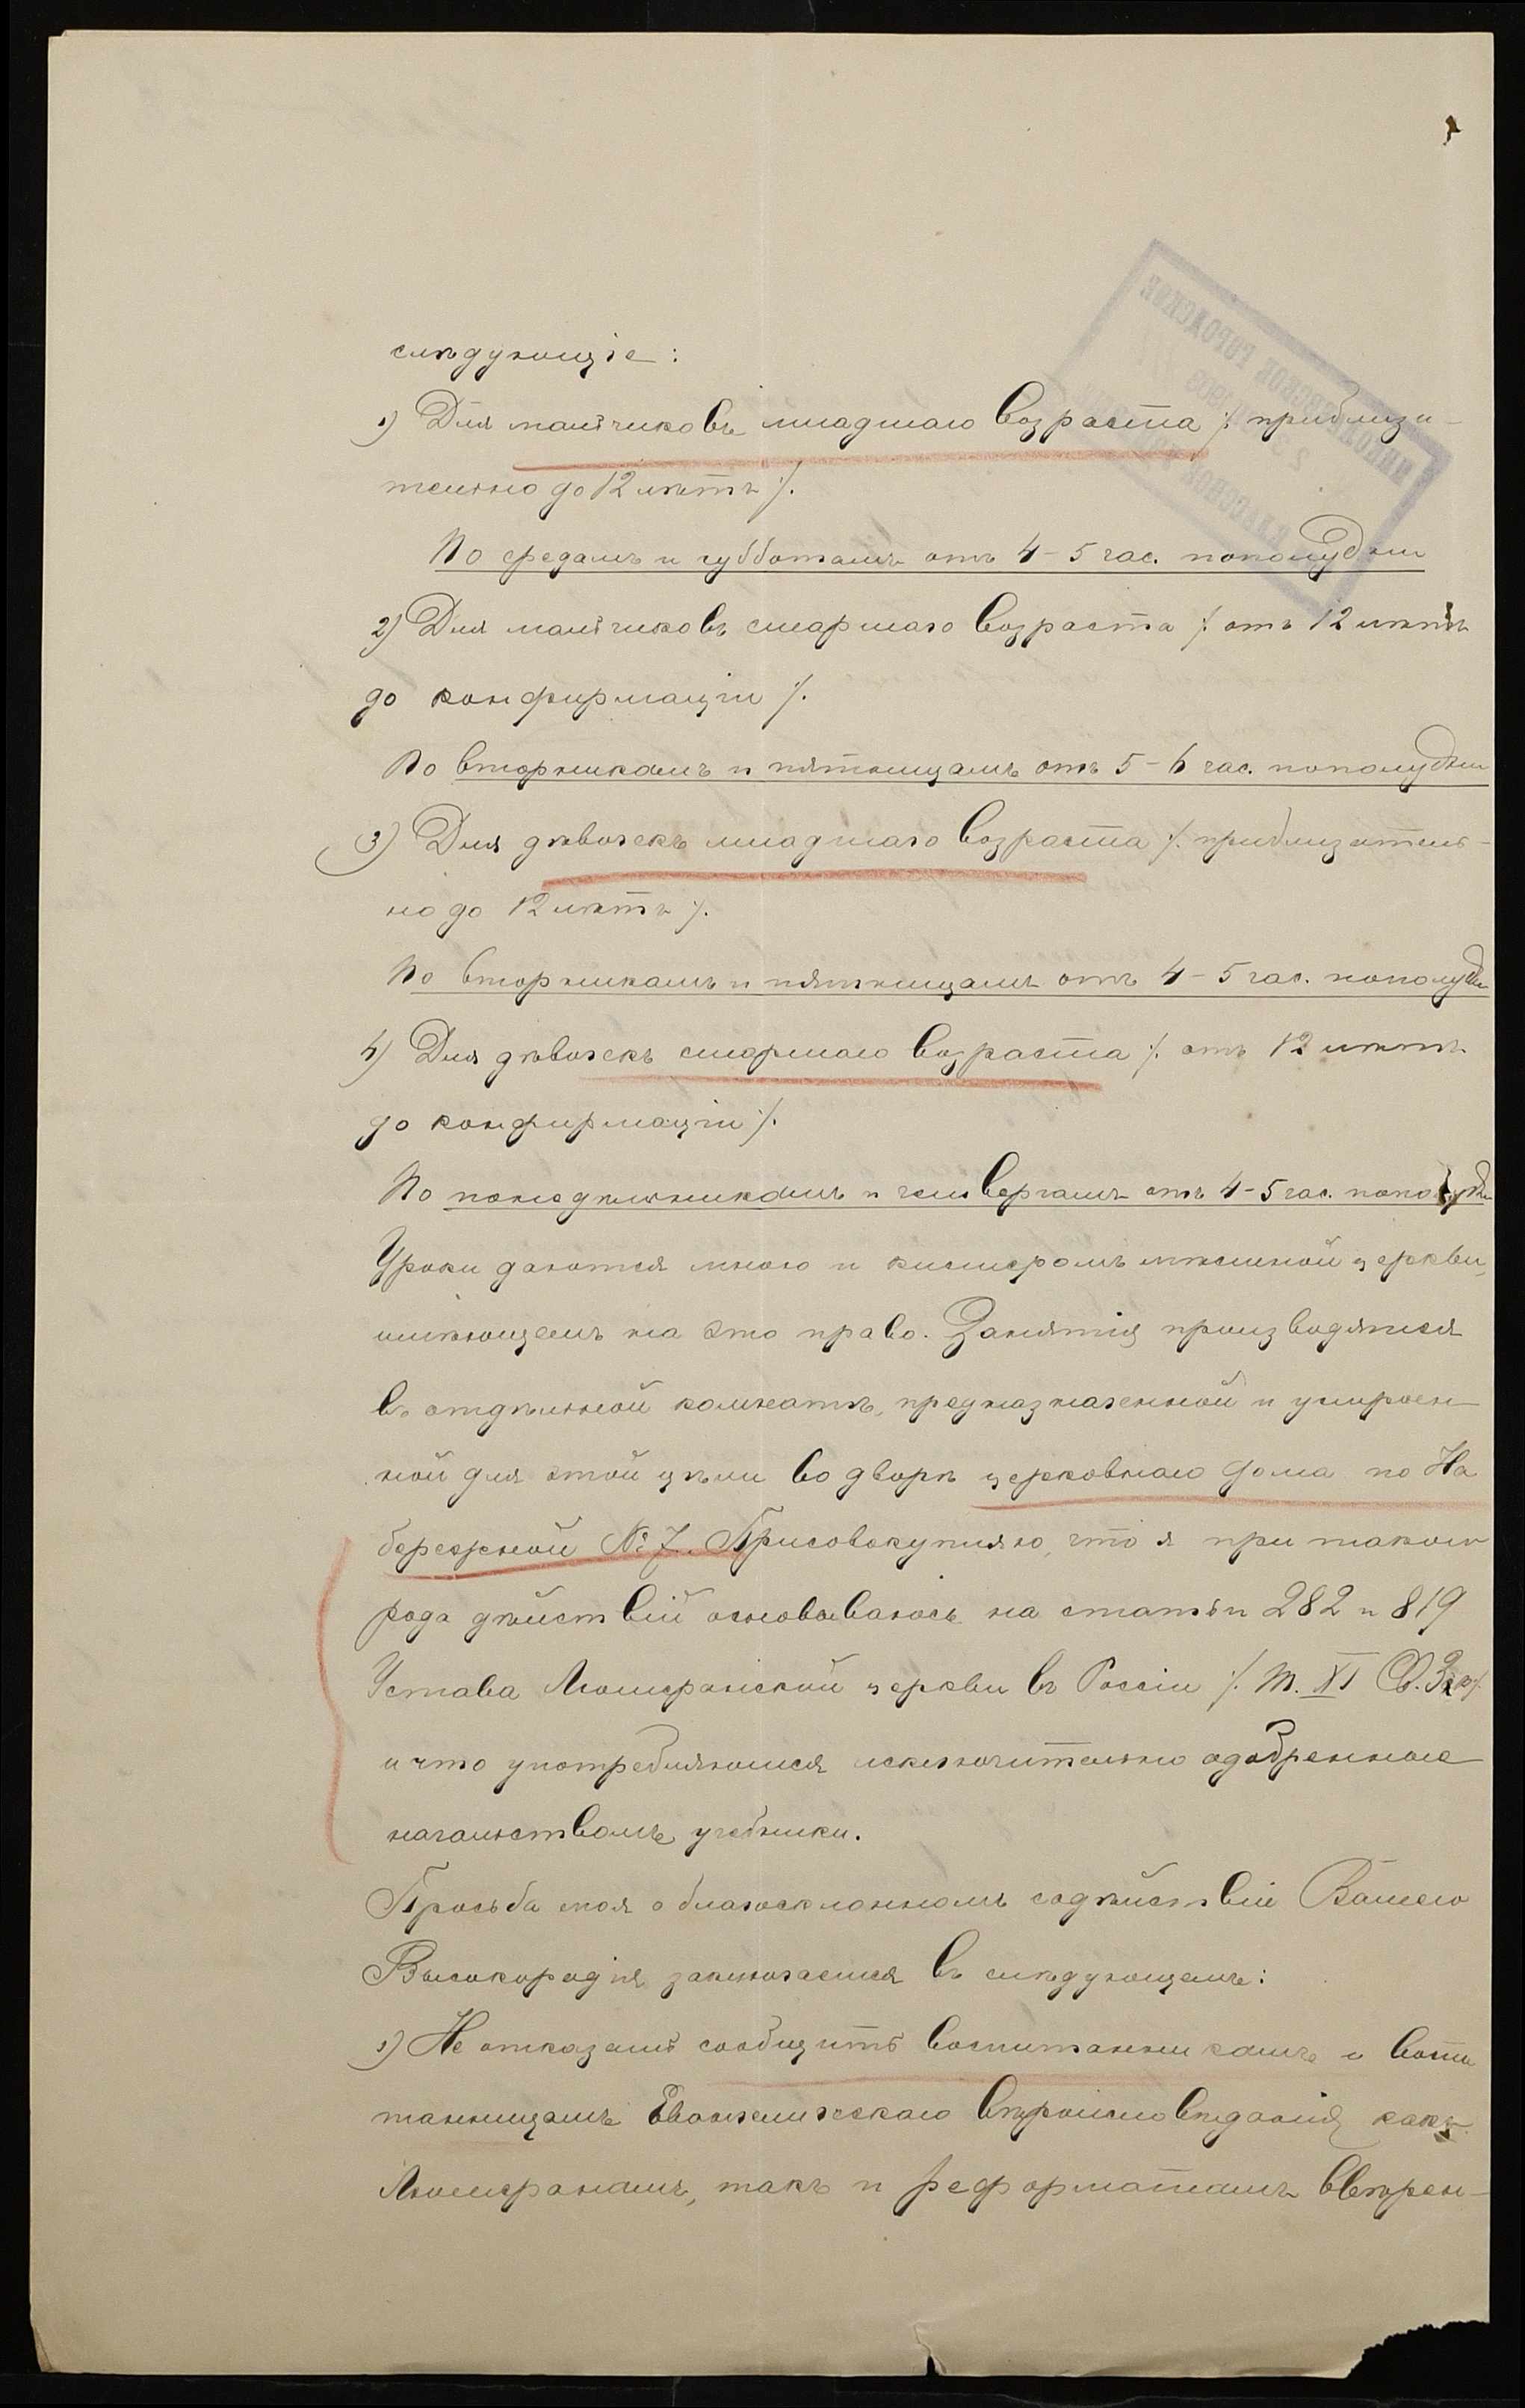 слѣдующіе:
1) Для мальчиковъ младшаго возраста /: приблизи-
тельно до 12 лѣтъ :/.
По средамъ и субботамъ отъ 4-5 час. пополудни
2) Для мальчиковъ старшаго возраста /: отъ 12 лѣтъ
до конфирмаціи :/.
По вторникамъ и пятницамъ отъ 5-6 час. пополудни
3) Для дѣвочекъ младшаго возраста /: приблизитель-
но до 12 лѣтъ :/.
По вторникамъ и пятницамъ отъ 4-5 час. пополудни
4) Для дѣвочекъ старшаго возраста /: отъ 12 лѣтъ
до конфирмаціи :/.
По понедѣльникамъ и четвергамъ отъ 4-5 час. пополудни
Уроки даются мною и кистеромъ мѣстной церкви,
имѣющемъ на это право. Занятія производятся
въ отдѣльной комнатѣ, предназначенной и устроен-
ной для этой цѣли во дворѣ церковнаго дома по На
бережной № 7. Присовокупляю, что я при такого
рода дѣйствій основываюсь на статьи 282 и 819
Устава Лютеранской церкви въ Россіи /: т. XI Св. Зак :/.
и что употребляются исключительно одобренные
начальствомъ учебники.
Просьба моя о благосклонномъ содѣйствіи Вашего
Высокородія заключается въ слѣдующемъ:
1) Не отказать сообщить воспитанникамъ и воспи
танницамъ Евангелическаго вѣроисповѣданія какъ
Лютеранамъ, такъ и реформатамъ ввѣрен-